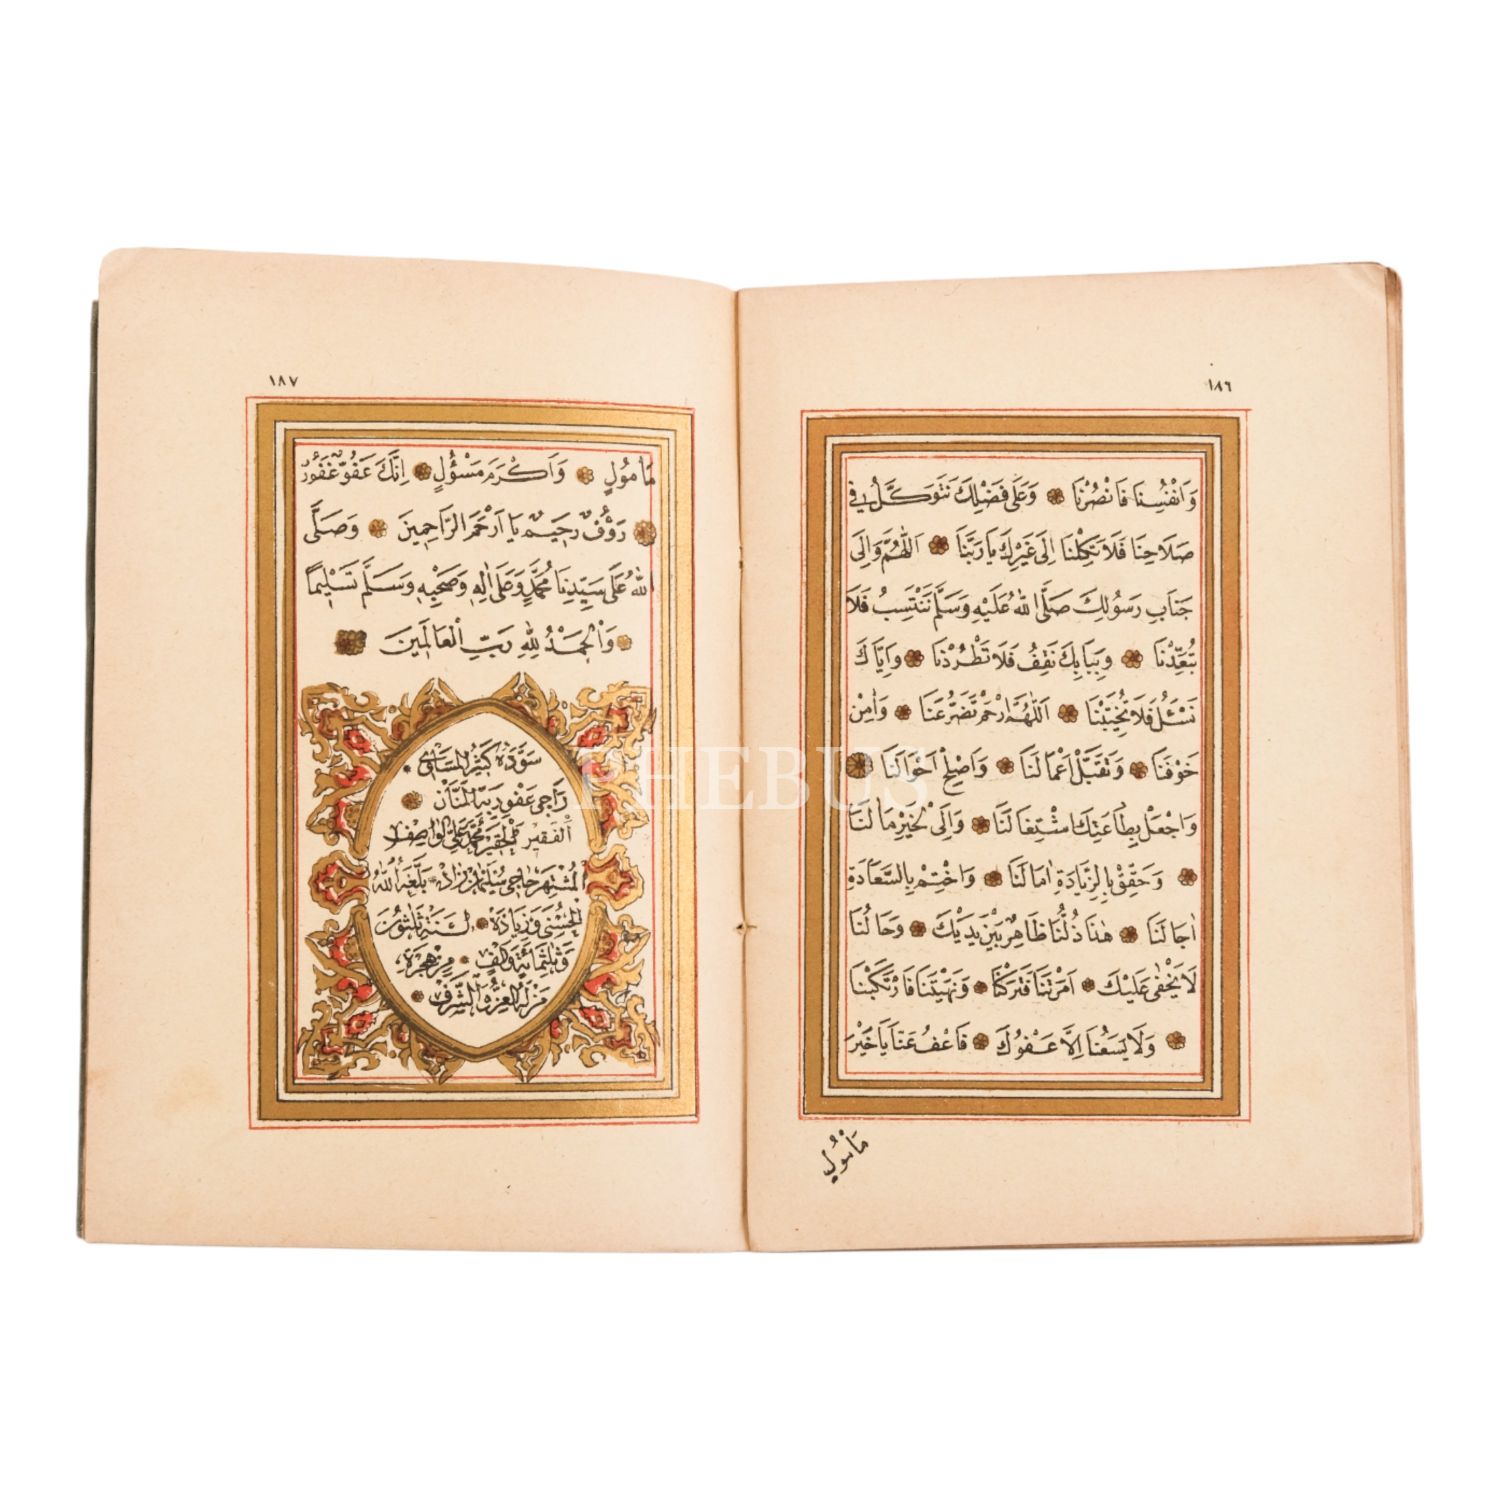 ١٨٦
وَاَنْفُسِنَا فَانْصُرْنَا وَعَلٰى فَضْلِكَ نَتَوَكَّلُ فِى
صَلَاحِنَا فَلَا تَكِلْنَا اِلٰى غَيْرِكَ يَا رَبَّنَا اَللّٰهُمَّ وَاِلٰى
جَنَابِ رَسُولِكَ صَلَّى اللّٰهُ عَلَيْهِ وَسَلَّمَ نَنْتَسِبُ فَلَا
تُبَعِّدْنَا وَبِبَابِكَ نَقِفُ فَلَا تَطْرُدْنَا وَاِيَّاكَ
نَسْئَلُ فَلَا تُخَيِّبْنَا اَللّٰهُمَّ ارْحَمْ تَضَرُّعَنَا وَاٰمِنْ
خَوْفَنَا وَتَقَبَّلْ اَعْمَالَنَا وَاَصْلِحْ اَحْوَالَنَا
وَاجْعَلْ بِطَاعَتِكَ اشْتِغَالَنَا وَاِلَى الْخَيْرِ مَاٰلَنَا
وَحَقِّقْ بِالزِّيَادَةِ اٰمَالَنَا وَاخْتِمْ بِالسَّعَادَةِ
اٰجَالَنَا هٰذَا ذُلُّنَا ظَاهِرٌ بَيْنَ يَدَيْكَ وَحَالُنَا
لَا يَخْفٰى عَلَيْكَ اَمَرْتَنَا فَتَرَكْنَا وَنَهَيْتَنَا فَارْتَكَبْنَا
وَلَا يَسَعُنَا اِلَّا عَفْوُكَ فَاعْفُ عَنَّا يَا خَيْرَ
مَأْمُولٍ
١٨٧
مَأْمُولٍ وَاَكْرَمَ مَسْؤُلٍ اِنَّكَ عَفُوٌّ غَفُورٌ
رَؤُفٌ رَحِيمٌ يَا اَرْحَمَ الرَّاحِمِينَ وَصَلَّى
اللّٰهُ عَلٰى سَيِّدِنَا مُحَمَّدٍ وَعَلٰى اٰلِهِ وَصَحْبِهِ وَسَلَّمَ تَسْلِيمًا
وَالْحَمْدُ لِلّٰهِ رَبِّ الْعَالَمِينَ
سَوَّدَهُ كَثِيرُ الْمَسَاوِئِ
رَاجِى عَفْوِ رَبِّهِ الْمَنَّانِ
الْفَقِيرُ الْحَقِيرُ مُحَمَّد عَلِى الْوَاصِفُ
الْمُشْتَهِرُ حَاجِى سُلَيْمَانْ زَادَه بَلَّغَهُ اللّٰهُ
الْحُسْنٰى وَزِيَادَةً لِسَنَةِ ثَلٰثُونَ
وَثَلٰثُمِائَةٍ وَاَلْفٍ مِنْ هِجْرَةِ
مَنْ لَهُ الْعِزُّ وَالشَّرَفُ
PHEBUS